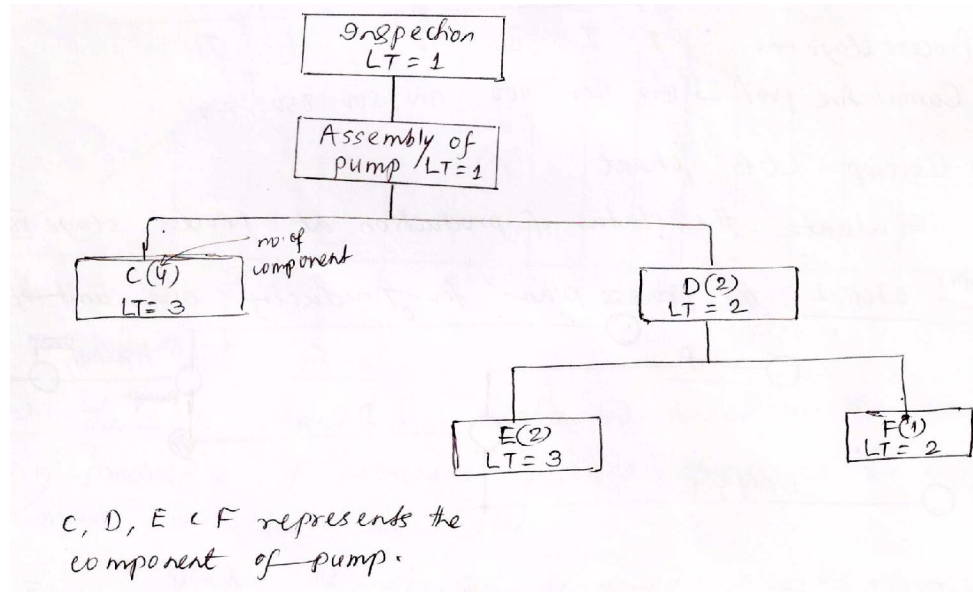 Inspection
LT = 1
Assembly of
pump LT=1
no. of
component
C (4)
LT= 3
D (2)
LT = 2
E (2)
LT = 3
F (1)
LT = 2
C, D, E & F represents the
component of pump.